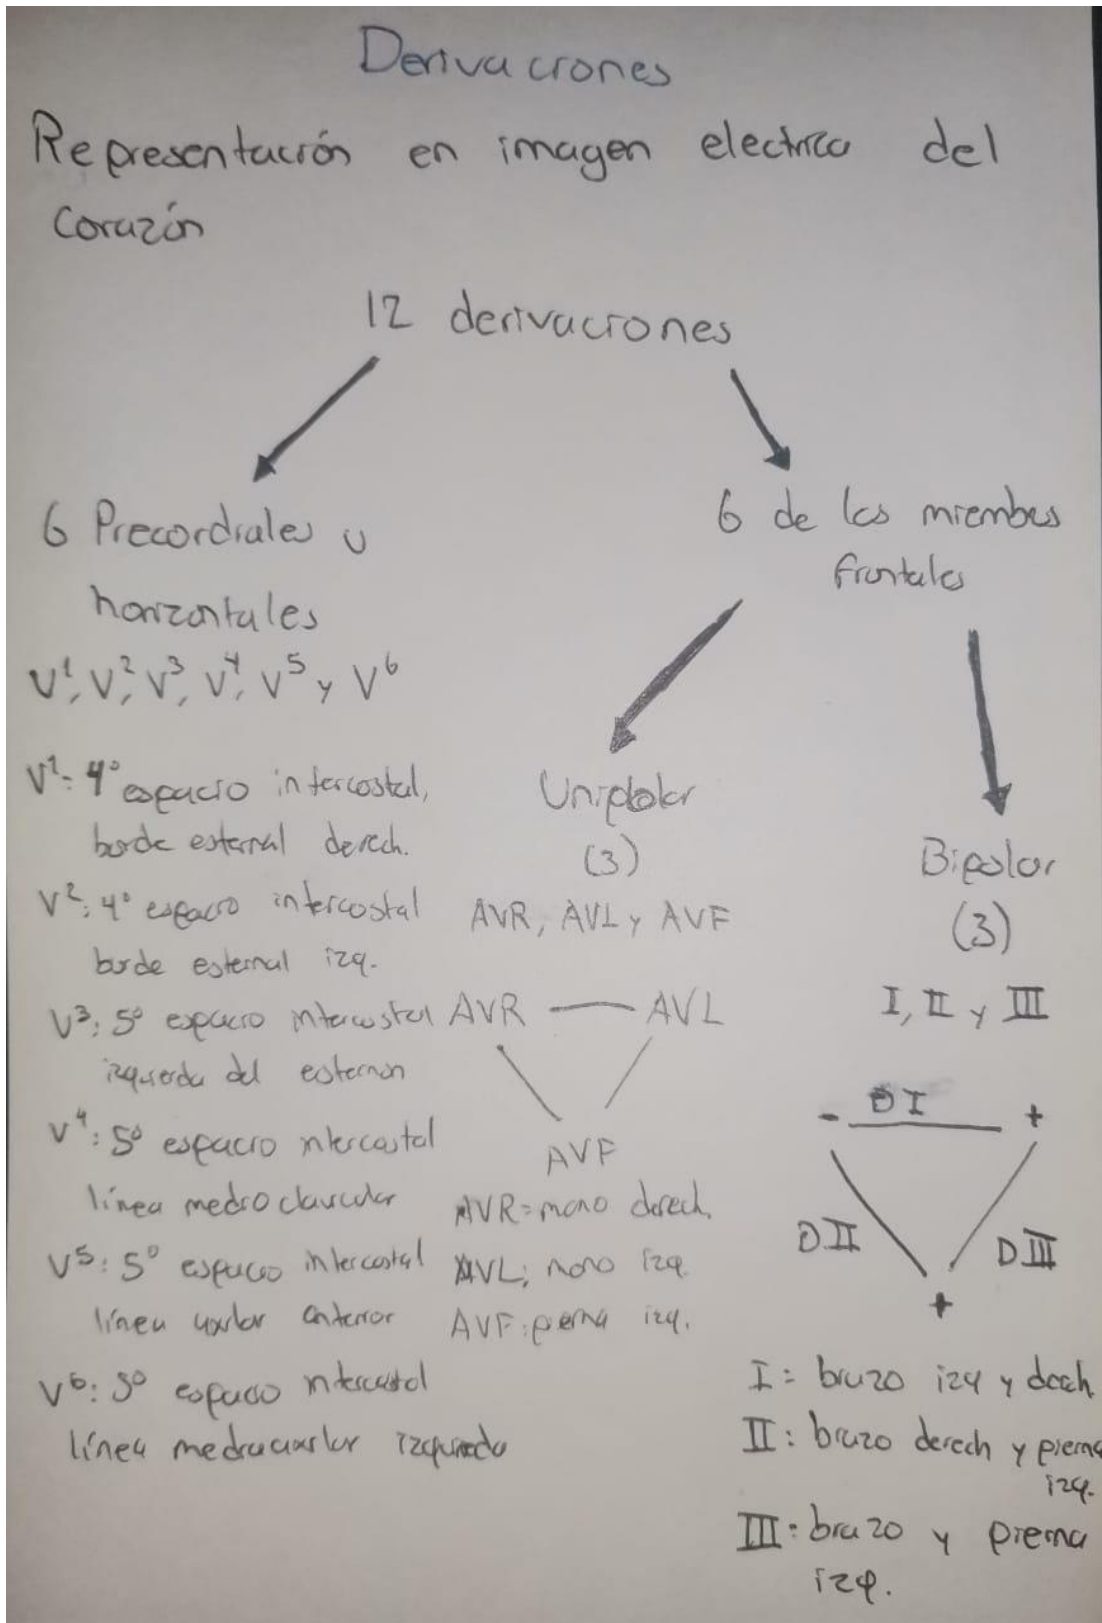 Derivaciones
Representación en imagen electrica del
corazón
12 derivaciones
6 Precordiales u
horizontales
V¹, V², V³, V⁴, V⁵ y V⁶
V¹: 4° espacio intercostal,
borde esternal derech.
V²: 4° espacio intercostal
borde esternal izq.
V³: 5° espacio intercostal
izquierda del esternon
V⁴: 5° espacio intercostal
línea medio clavicular
V⁵: 5° espacio intercostal
línea axilar anterior
V⁶: 5° espacio intercostal
línea medioaxilar izquierda
6 de los miembros
frontales
Uniplolar
(3)
AVR, AVL y AVF
AVR AVL
AVF
AVR= mano derech.
AVL: mano izq.
AVF: pierna izq.
Bipolar
(3)
I, II y III
- DI +
DII DIII
+
I= brazo izq y dech.
II: brazo derech y pierna
izq.
III: brazo y pierna
izq.